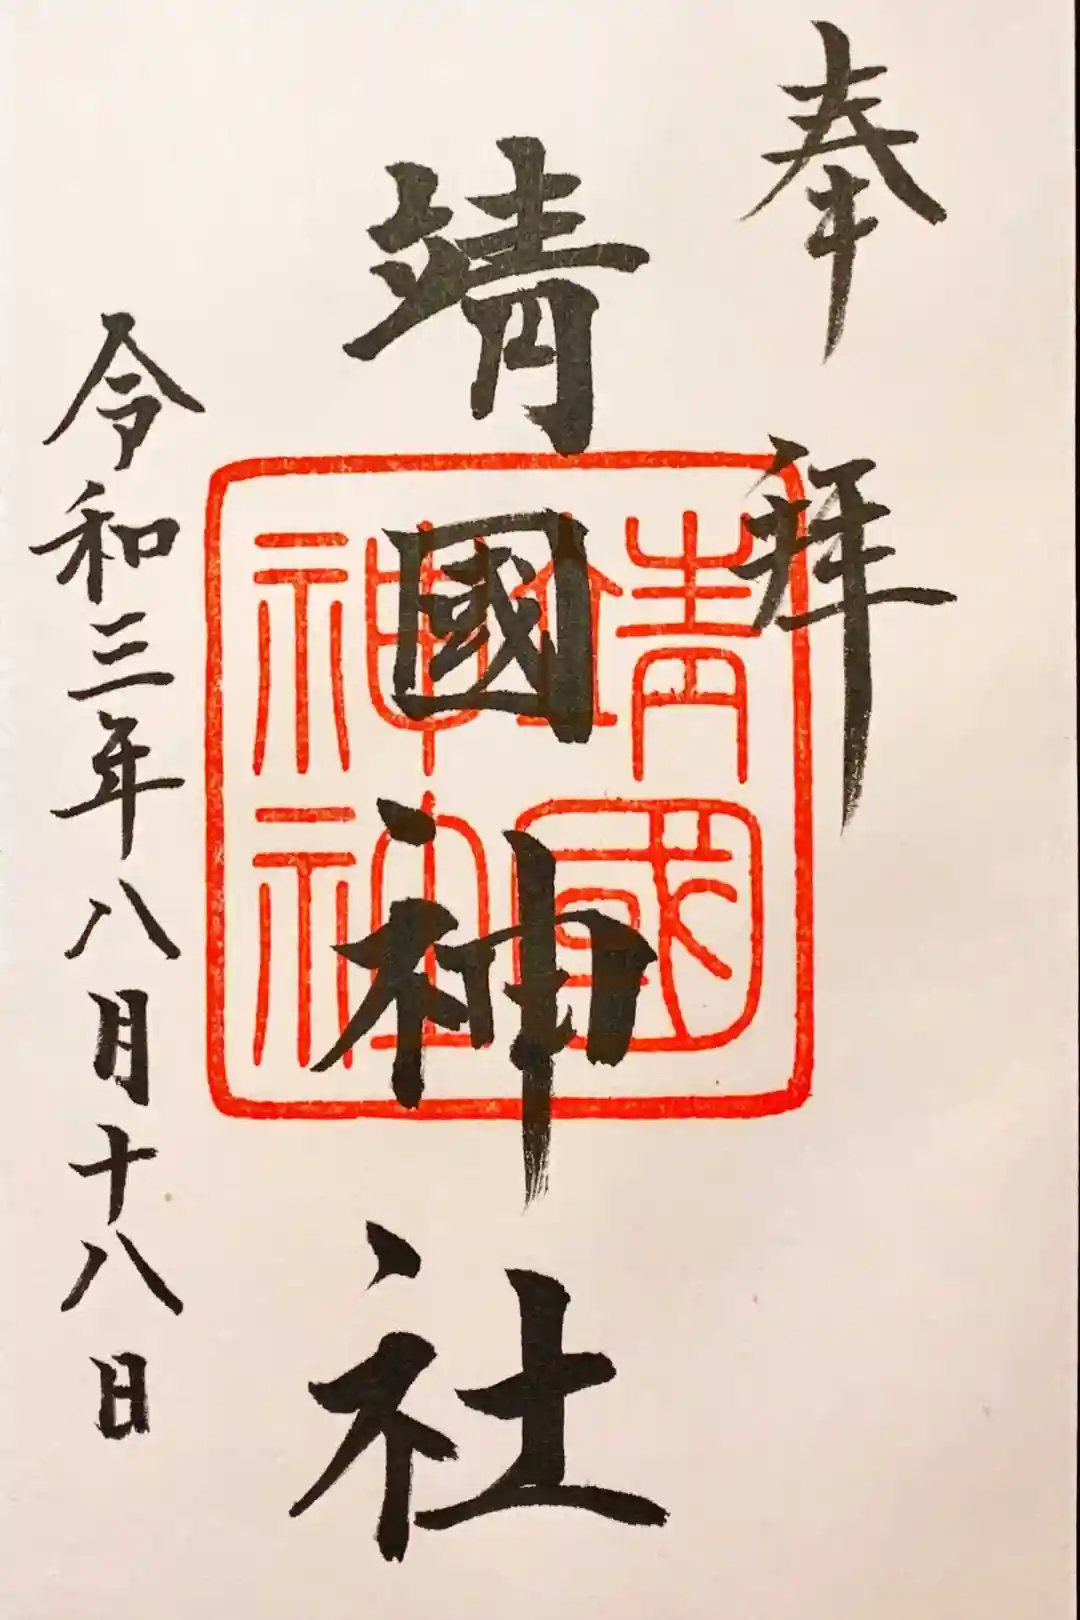 奉拝
靖國神社
靖國
神社
令和三年八月十八日